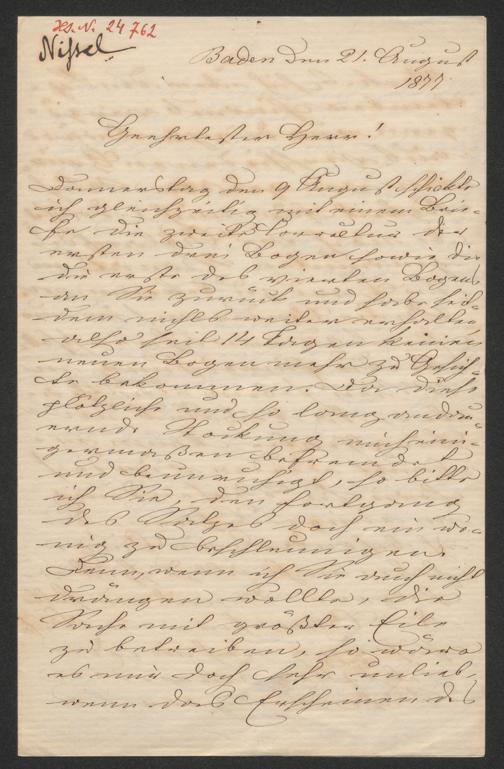 Hs. N. 24762
Nissel
Baden den 21. August
1877
Geehrtester Herr!
Donnerstag den 9 August schickte
ich gleichzeitig mit einem Brie-
fe die zweite Correctur der
ersten drei Bogen sowie die
die erste des vierten Bogens
an Sie zurück und habe seit-
dem nichts weiter erhalten
also seit 14 Tagen keinen
neuen Bogen mehr zu Gesich-
te bekommen. Da diese
plötzliche und so lang andau-
ernde Stockung mich eini-
germaßen befremdet
und beunruhigt, so bitte
ich Sie, den Fortgang
des Satzes doch ein we-
nig zu beschleunigen.
Denn, wenn ich Sie auch nicht
drängen wollte, die
Sache mit größter Eile
zu betreiben, so wäre
es mir doch sehr unlieb,
wenn das Erscheinen des